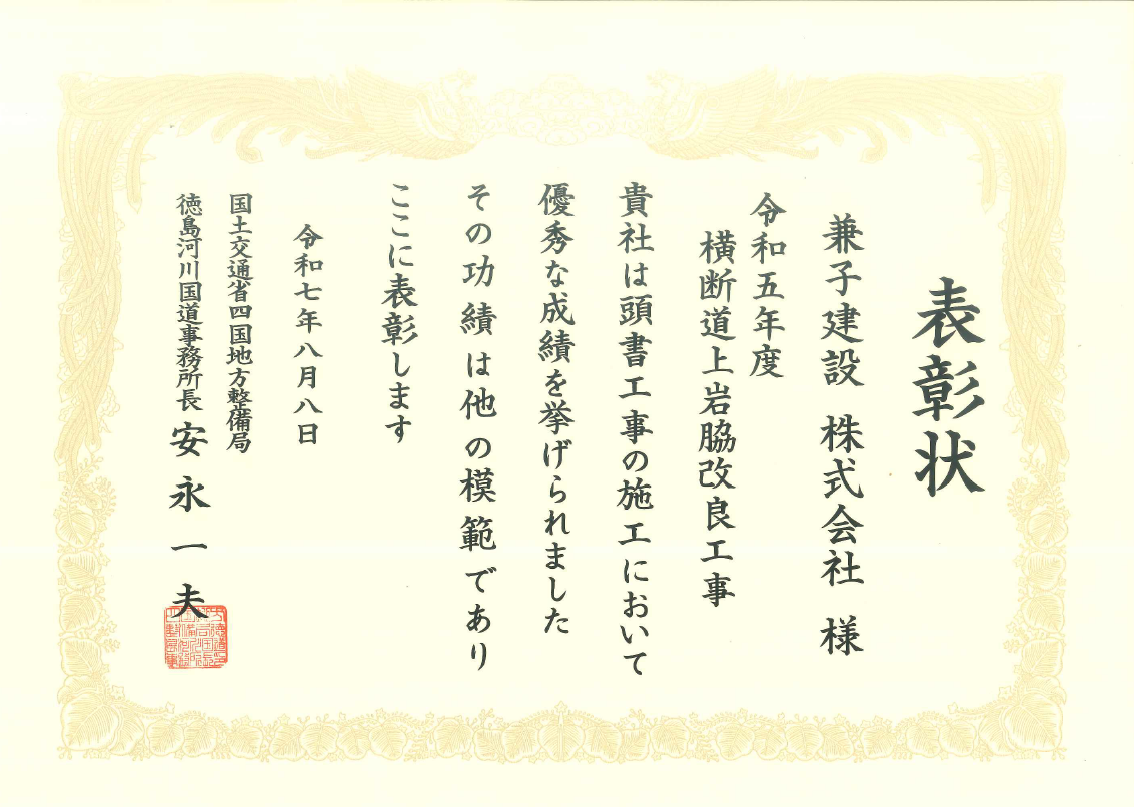 表彰状
兼子建設 株式会社 様
令和五年度
横断道上岩脇改良工事
貴社は頭書工事の施工において
優秀な成績を挙げられました
その功績は他の模範であり
ここに表彰します
令和七年八月八日
国土交通省四国地方整備局
徳島河川国道事務所長 安永一夫